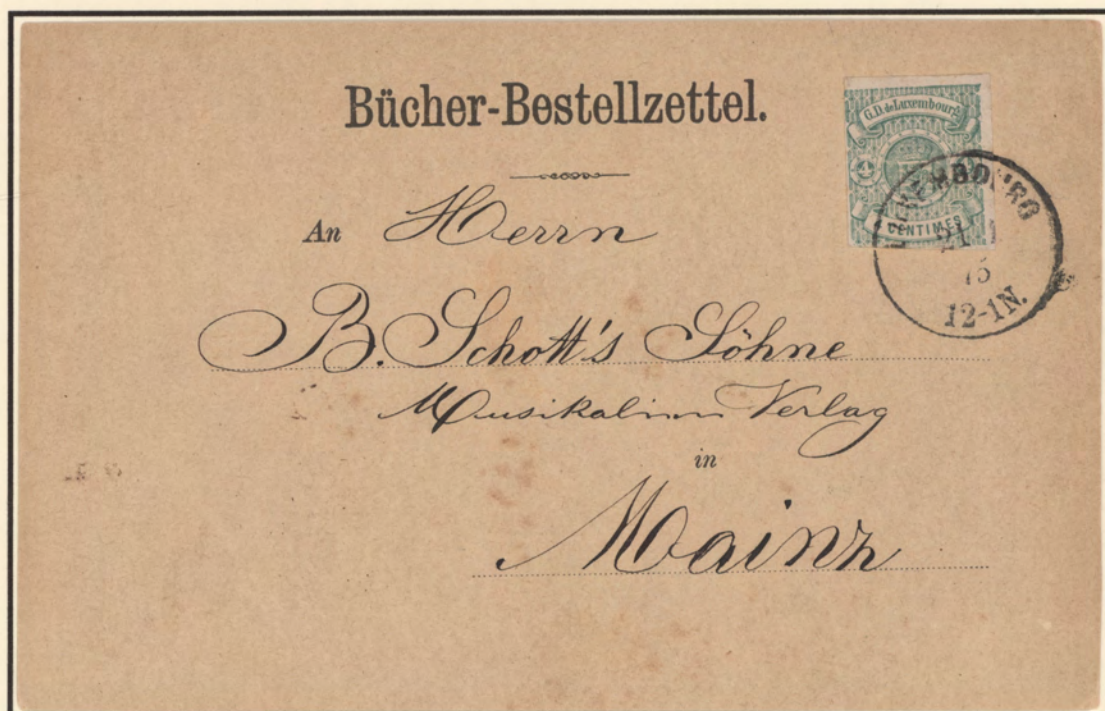 Bücher-Bestellzettel.
G.D. de Luxembourg
4
CENTIMES
LUXEMBOURG
21
75
12-1N.
An Herrn
B. Schott's Söhne
Musikalien Verlag
in
Mainz